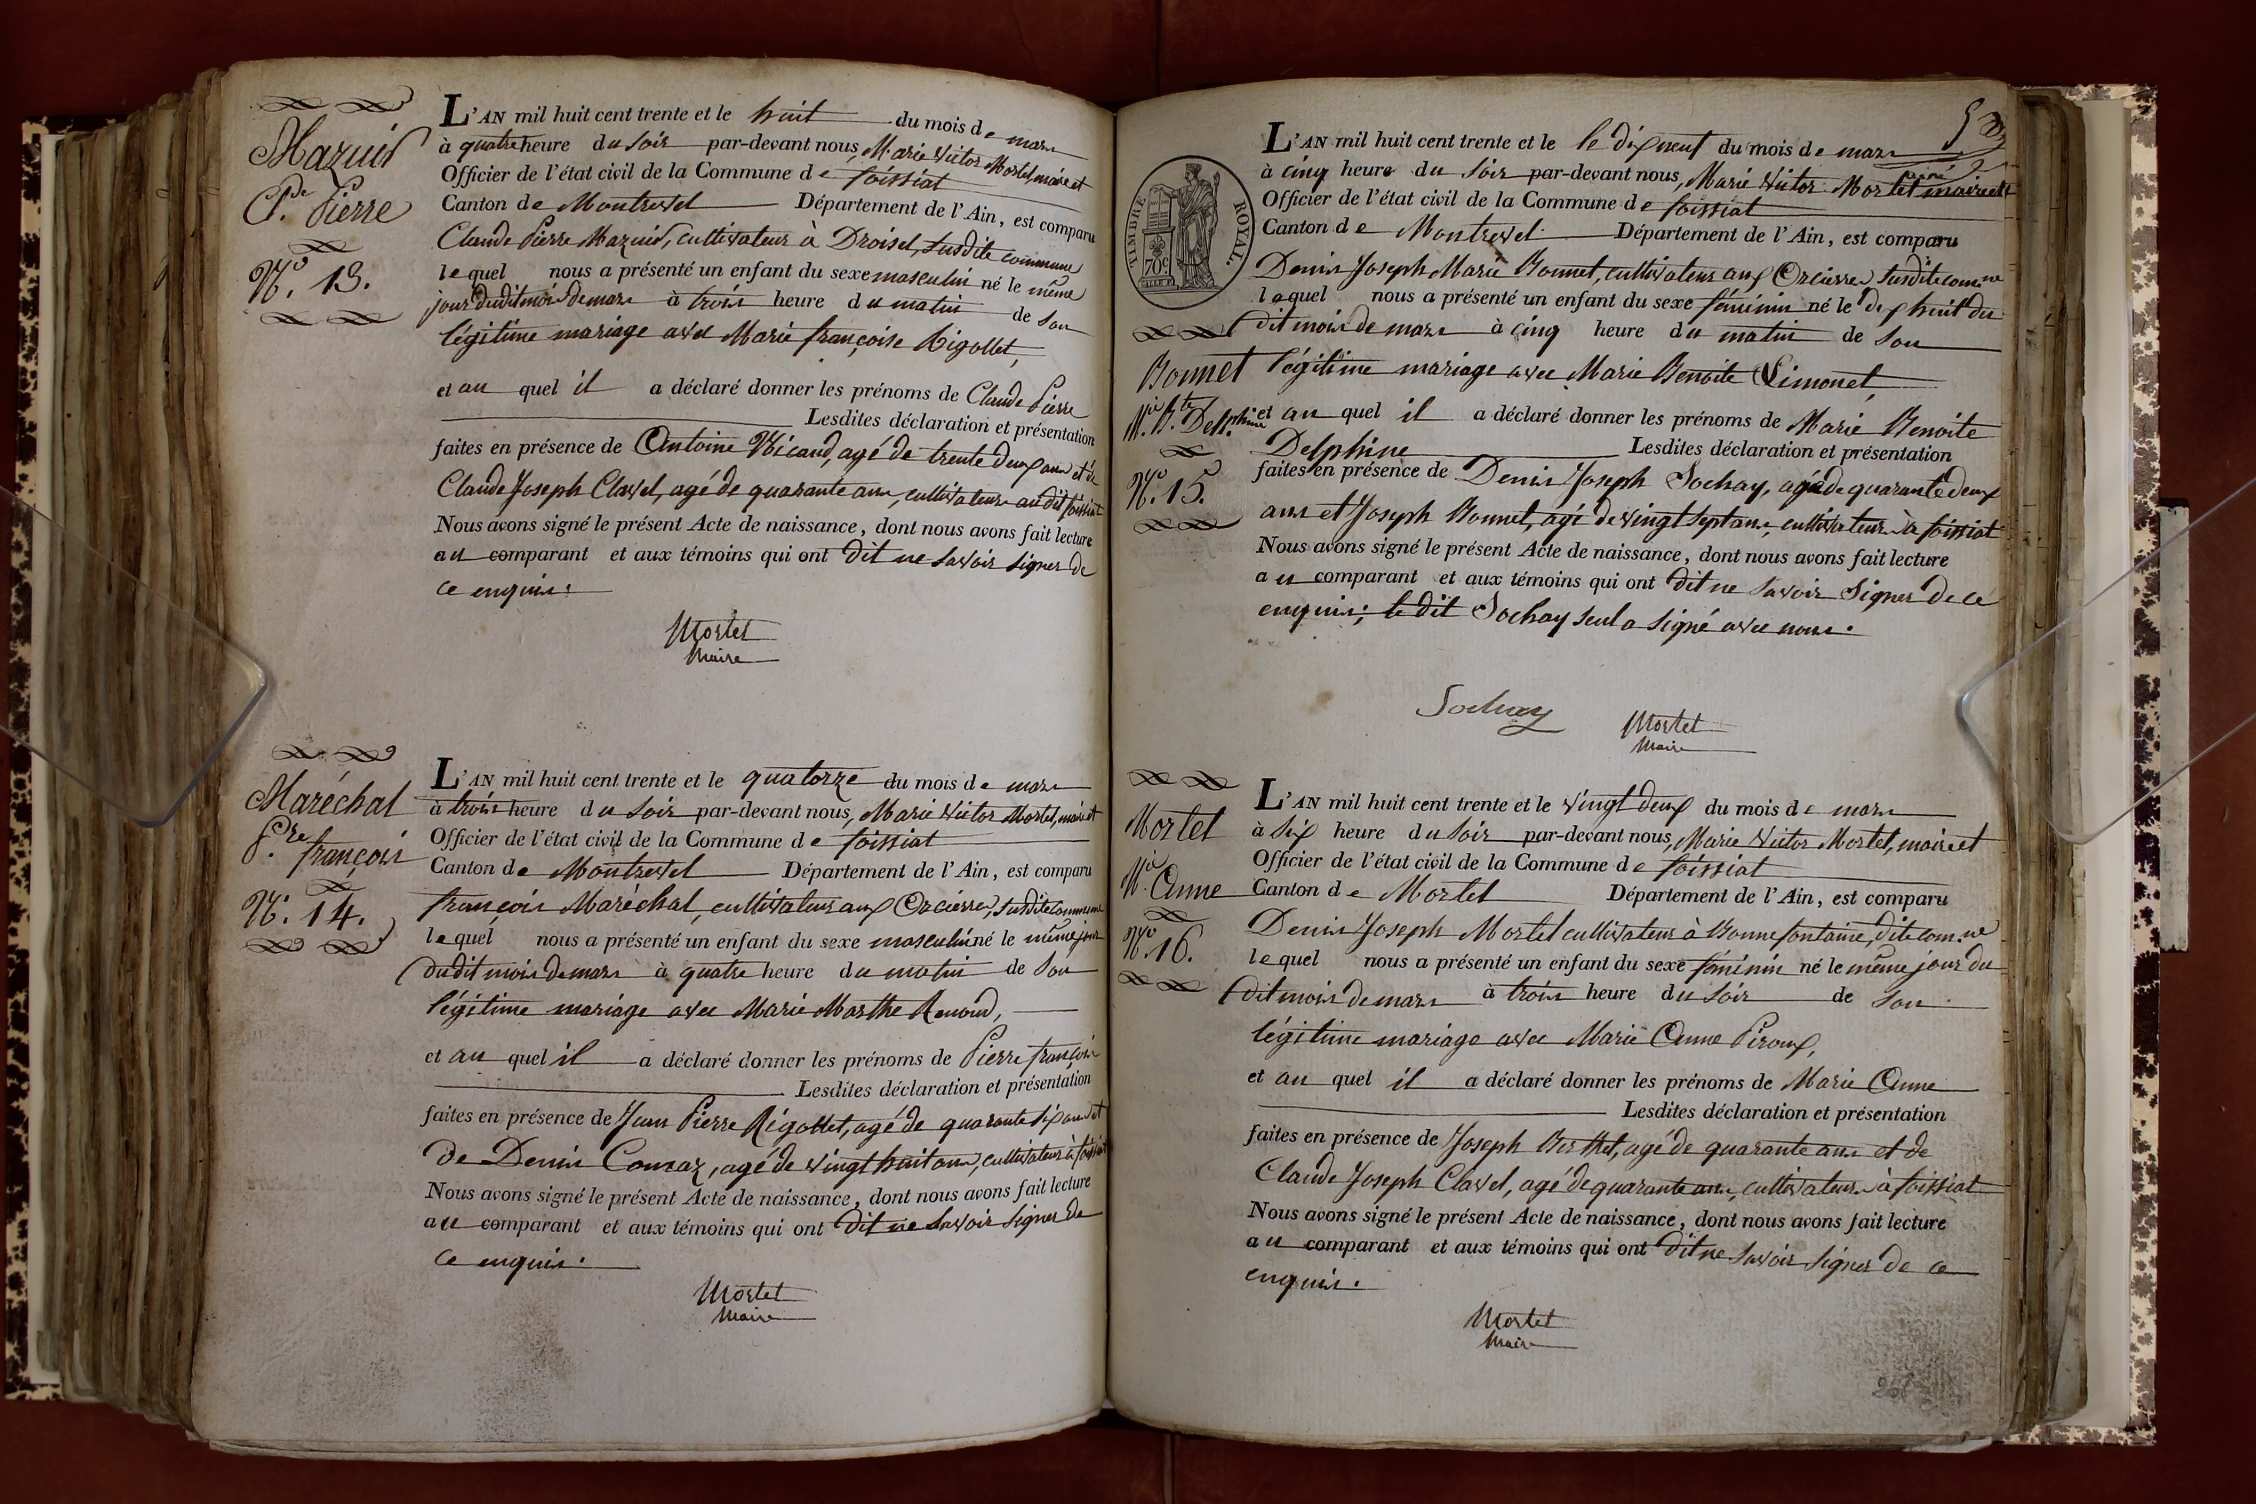 Mazuid
Cde Pierre
No. 13.
L'AN mil huit cent trente et le huit du mois de mars
à quatre heure du soir par-devant nous, Marie Victor Mortel, maire et
Officier de l'état civil de la Commune de foissiat
Canton de Montrevel Département de l'Ain, est comparu
Claude Pierre Mazuid, cultivateur à Droisel, susdite commune
lequel nous a présenté un enfant du sexe masculin né le même
jour dudit mois de mars à trois heure du matin de son
légitime mariage avec Marie françoise Rigollet,
et au quel il a déclaré donner les prénoms de Claude Pierre
Lesdites déclaration et présentation
faites en présence de Antoine Vicaud, agé de trente deux ans et de
Claude Joseph Clavel, agé de quarante ans, cultivateurs au dit foissiat
Nous avons signé le présent Acte de naissance, dont nous avons fait lecture
au comparant et aux témoins qui ont dit ne savoir signer de
ce enquis.
Mortel
Maire
Maréchal
Pre françois
No. 14.
L'AN mil huit cent trente et le quatorze du mois de mars
à trois heure du soir par-devant nous, Marie Victor Mortel, maire et
Officier de l'état civil de la Commune de foissiat
Canton de Montrevel Département de l'Ain, est comparu
françois Maréchal, cultivateur aux Orcières, susdite commune
lequel nous a présenté un enfant du sexe masculin né le même jour
dudit mois de mars à quatre heure du matin de son
légitime mariage avec Marie Marthe Renoud,
et au quel il a déclaré donner les prénoms de Pierre françois
Lesdites déclaration et présentation
faites en présence de Jean Pierre Rigollet, agé de quarante six ans et
de Denis Comaz, agé de vingt huit ans, cultivateurs à foissiat
Nous avons signé le présent Acte de naissance, dont nous avons fait lecture
au comparant et aux témoins qui ont dit ne savoir signer de
ce enquis.
Mortel
Maire
5
TIMBRE ROYAL.
70c
Bonnet
Mie Bte Delphine
No. 15.
L'AN mil huit cent trente et le le dix neuf du mois de mars
à cinq heure du soir par-devant nous, Marie Victor Mortel ainé maire et
Officier de l'état civil de la Commune de foissiat
Canton de Montrevel Département de l'Ain, est comparu
Denis Joseph Marie Bonnet, cultivateur aux Orcières susdite com.ne
lequel nous a présenté un enfant du sexe féminin né le dix huit du
dit mois de mars à cinq heure du matin de son
légitime mariage avec Marie Benoite Limonet,
et au quel il a déclaré donner les prénoms de Marie Benoite
Delphine Lesdites déclaration et présentation
faites en présence de Denis Joseph Sochay, agé de quarante deux
ans et Joseph Bonnet, agé de vingt sept ans, cultivateurs à foissiat
Nous avons signé le présent Acte de naissance, dont nous avons fait lecture
au comparant et aux témoins qui ont dit ne savoir signer de ce
enquis; le dit Sochay seul a signé avec nous.
Sochay
Mortel
Maire
Mortel
Mie Anne
No. 16.
L'AN mil huit cent trente et le vingt deux du mois de mars
à six heure du soir par-devant nous, Marie Victor Mortel, maire et
Officier de l'état civil de la Commune de foissiat
Canton de Mortel Département de l'Ain, est comparu
Denis Joseph Mortel cultivateur à Bonnefontaine, dite com.ne
lequel nous a présenté un enfant du sexe féminin né le même jour du
dit mois de mars à trois heure du soir de son
légitime mariage avec Marie Anne Piroux,
et au quel il a déclaré donner les prénoms de Marie Anne
Lesdites déclaration et présentation
faites en présence de Joseph Berthet, agé de quarante ans et de
Claude Joseph Clavel, agé de quarante ans, cultivateurs à foissiat
Nous avons signé le présent Acte de naissance, dont nous avons fait lecture
au comparant et aux témoins qui ont dit ne savoir signer de ce
enquis.
Mortel
Maire